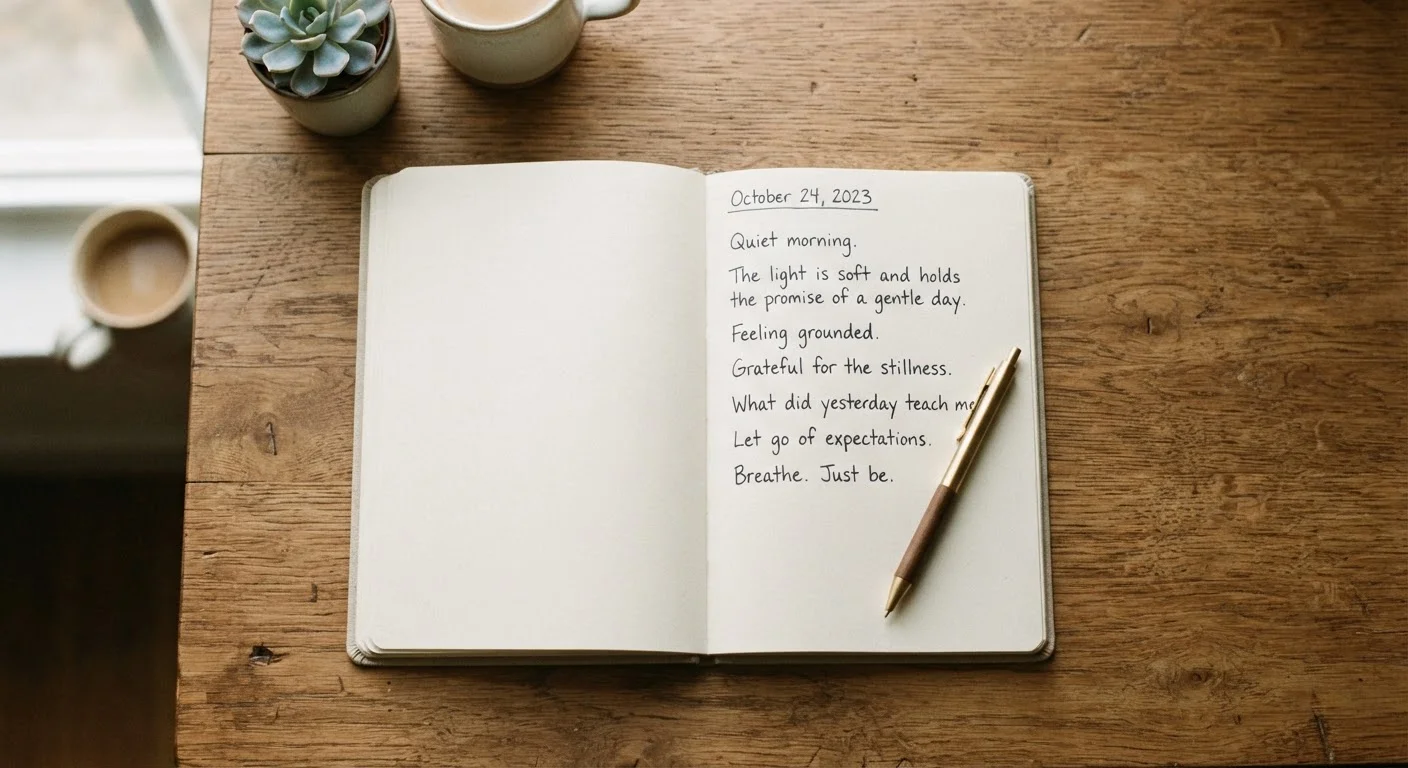 October 24, 2023
Quiet morning.
The light is soft and holds
the promise of a gentle day.
Feeling grounded.
Grateful for the stillness.
What did yesterday teach me
Let go of expectations.
Breathe. Just be.